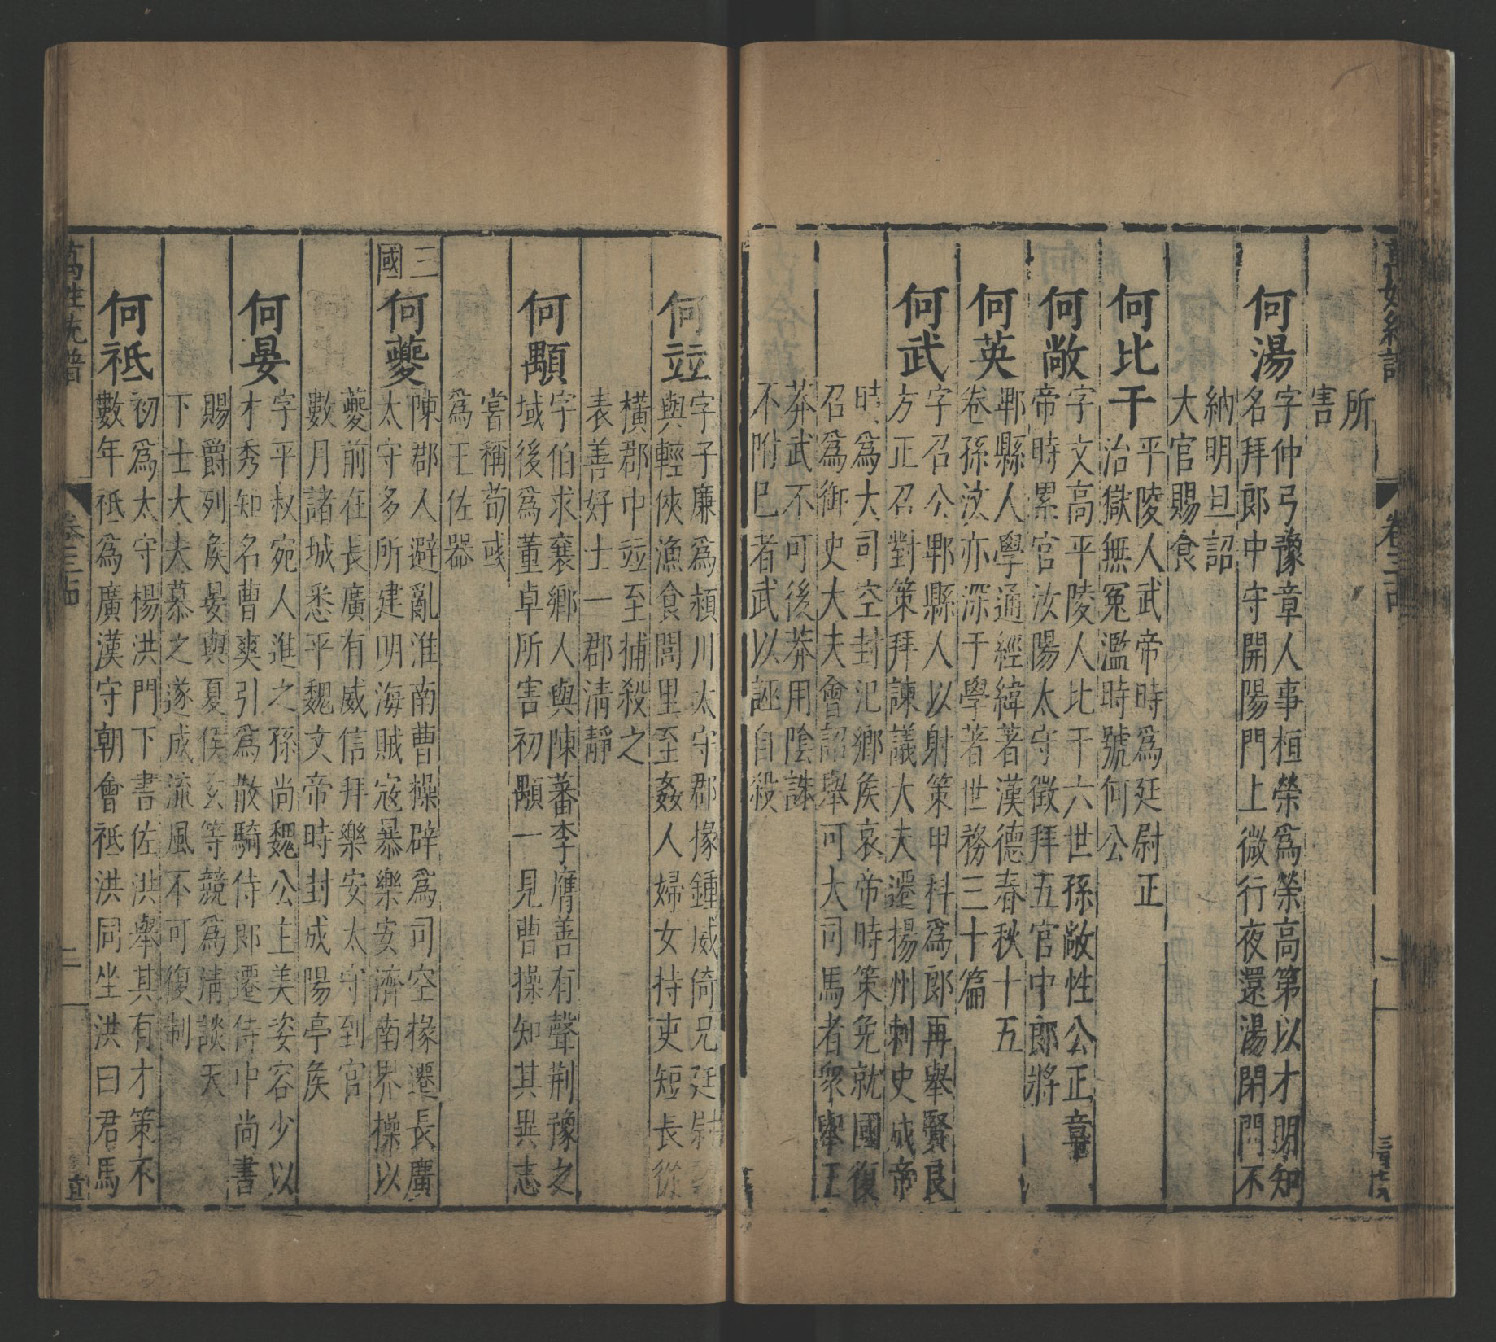 萬姓統譜 卷三十四
所
害
何湯 字仲弓豫章人事桓榮爲榮高第以才明知
名拜郎中守開陽門上微行夜還湯閉門不
納明旦詔
大官賜食
何比干 平陵人武帝時爲廷尉正
治獄無冤濫時號何公
何敞 字文高平陵人比干六世孫敞性公正章
帝時累官汝陽太守徵拜五官中郎將
何英 郫縣人學通經緯著漢德春秋十五
卷孫汶亦深于學著世務三十篇
何武 字召公郫縣人以射策甲科爲郎再舉賢良
方正召對策拜諫議大夫遷揚州刺史成帝
時爲大司空封汜鄉矦哀帝時策免就國復
召爲御史大夫會詔舉可大司馬者衆舉王
莽武不可後莽用陰誅
不附巳者武以誣自殺
何竝 字子廉爲潁川太守郡掾鍾威倚兄廷尉
與輕俠漁食閭里至姦人婦女持吏短長從
橫郡中竝至捕殺之
表善好士一郡清靜
何顒 字伯求襄鄉人與陳蕃李膺善有聲荆豫之
域後爲董卓所害初顒一見曹操知其異志
嘗稱荀彧
爲王佐器
三國 何夔 陳郡人避亂淮南曹操辟爲司空掾遷長廣
太守多所建明海賊寇暴樂安濟南界操以
夔前在長廣有威信拜樂安太守到官
數月諸城悉平魏文帝時封成陽亭矦
何晏 字平叔宛人進之孫尚魏公主美姿容少以
才秀知名曹爽引爲散騎侍郎遷侍中尚書
賜爵列矦晏與夏侯玄等競爲清談天
下士大夫慕之遂成流風不可復制
何祗 初爲太守楊洪門下書佐洪舉其有才策不
數年祗爲廣漢守朝會祗洪同坐洪曰君馬
萬姓統譜 卷三十四 二